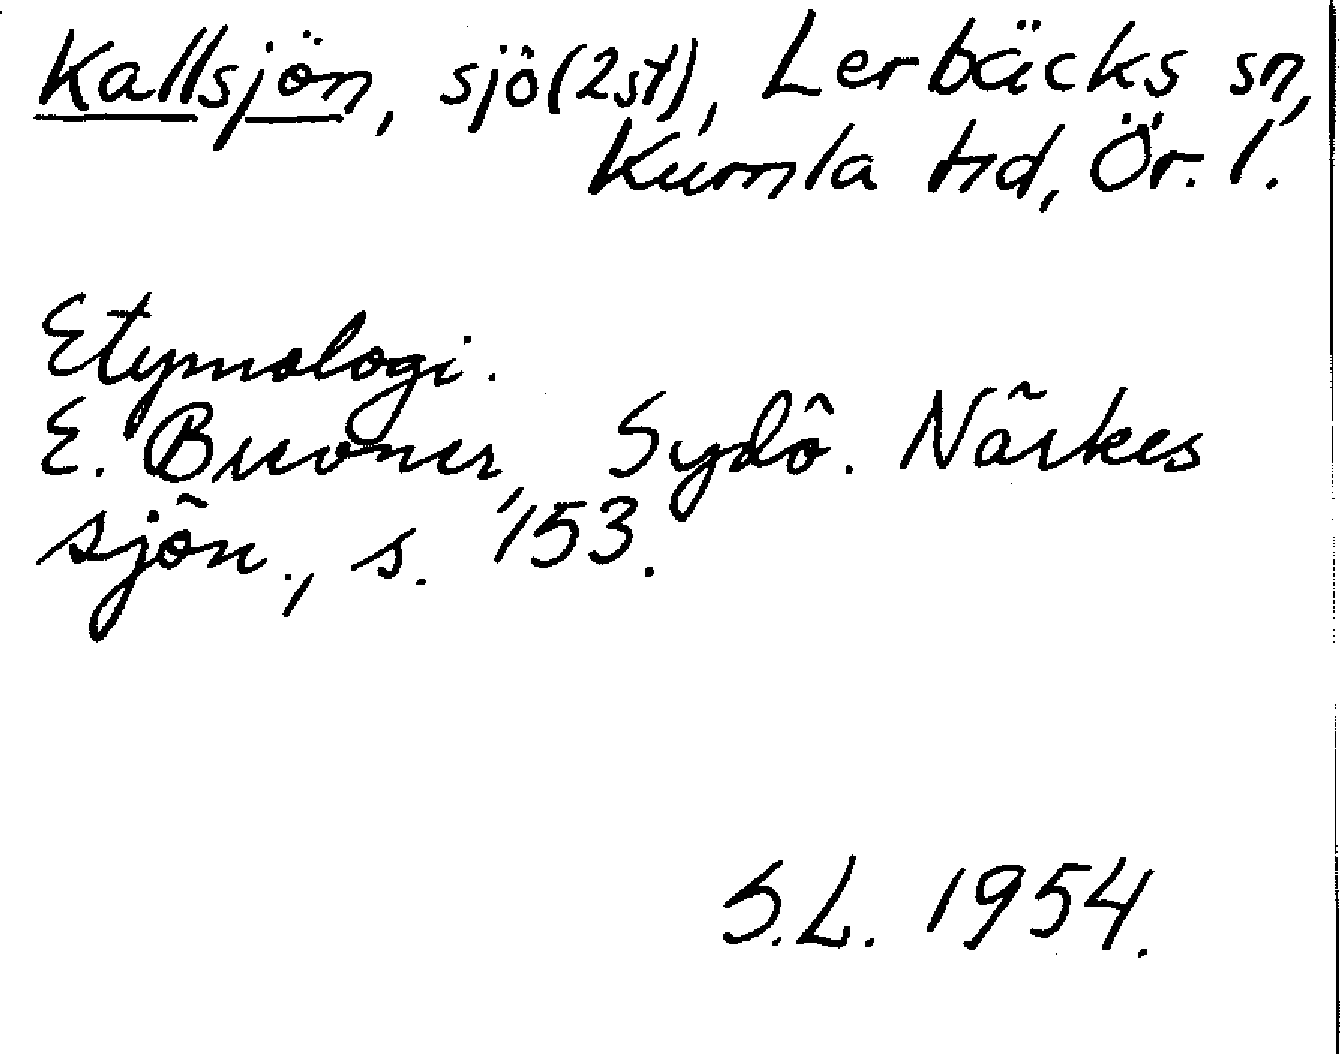 Kallsjön, sjö (2st), Lerbäcks sn,
Kumla hd, Ör. l.
Etymologi.
E. Brevner, Sydö. Närkes
sjön., s. 153.
S.L. 1954.